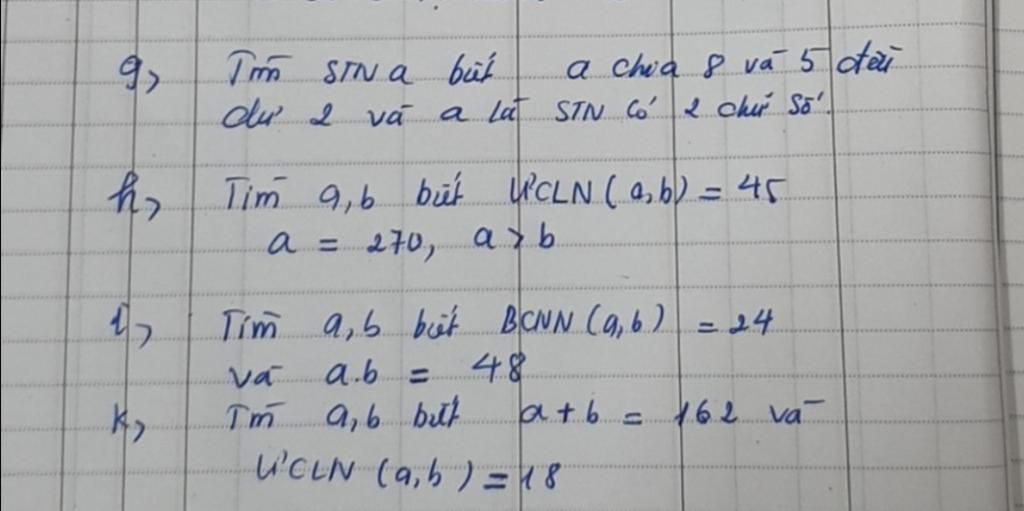 g, Tìm STN a biết a chia 8 và 5 đều
dư 2 và a là STN có 2 chữ số.
h, Tìm a,b biết ƯCLN (a,b) = 45
a = 270, a > b
i, Tìm a,b biết BCNN (a,b) = 24
và a.b = 48
k, Tìm a,b biết a + b = 162 và
ƯCLN (a,b) = 18